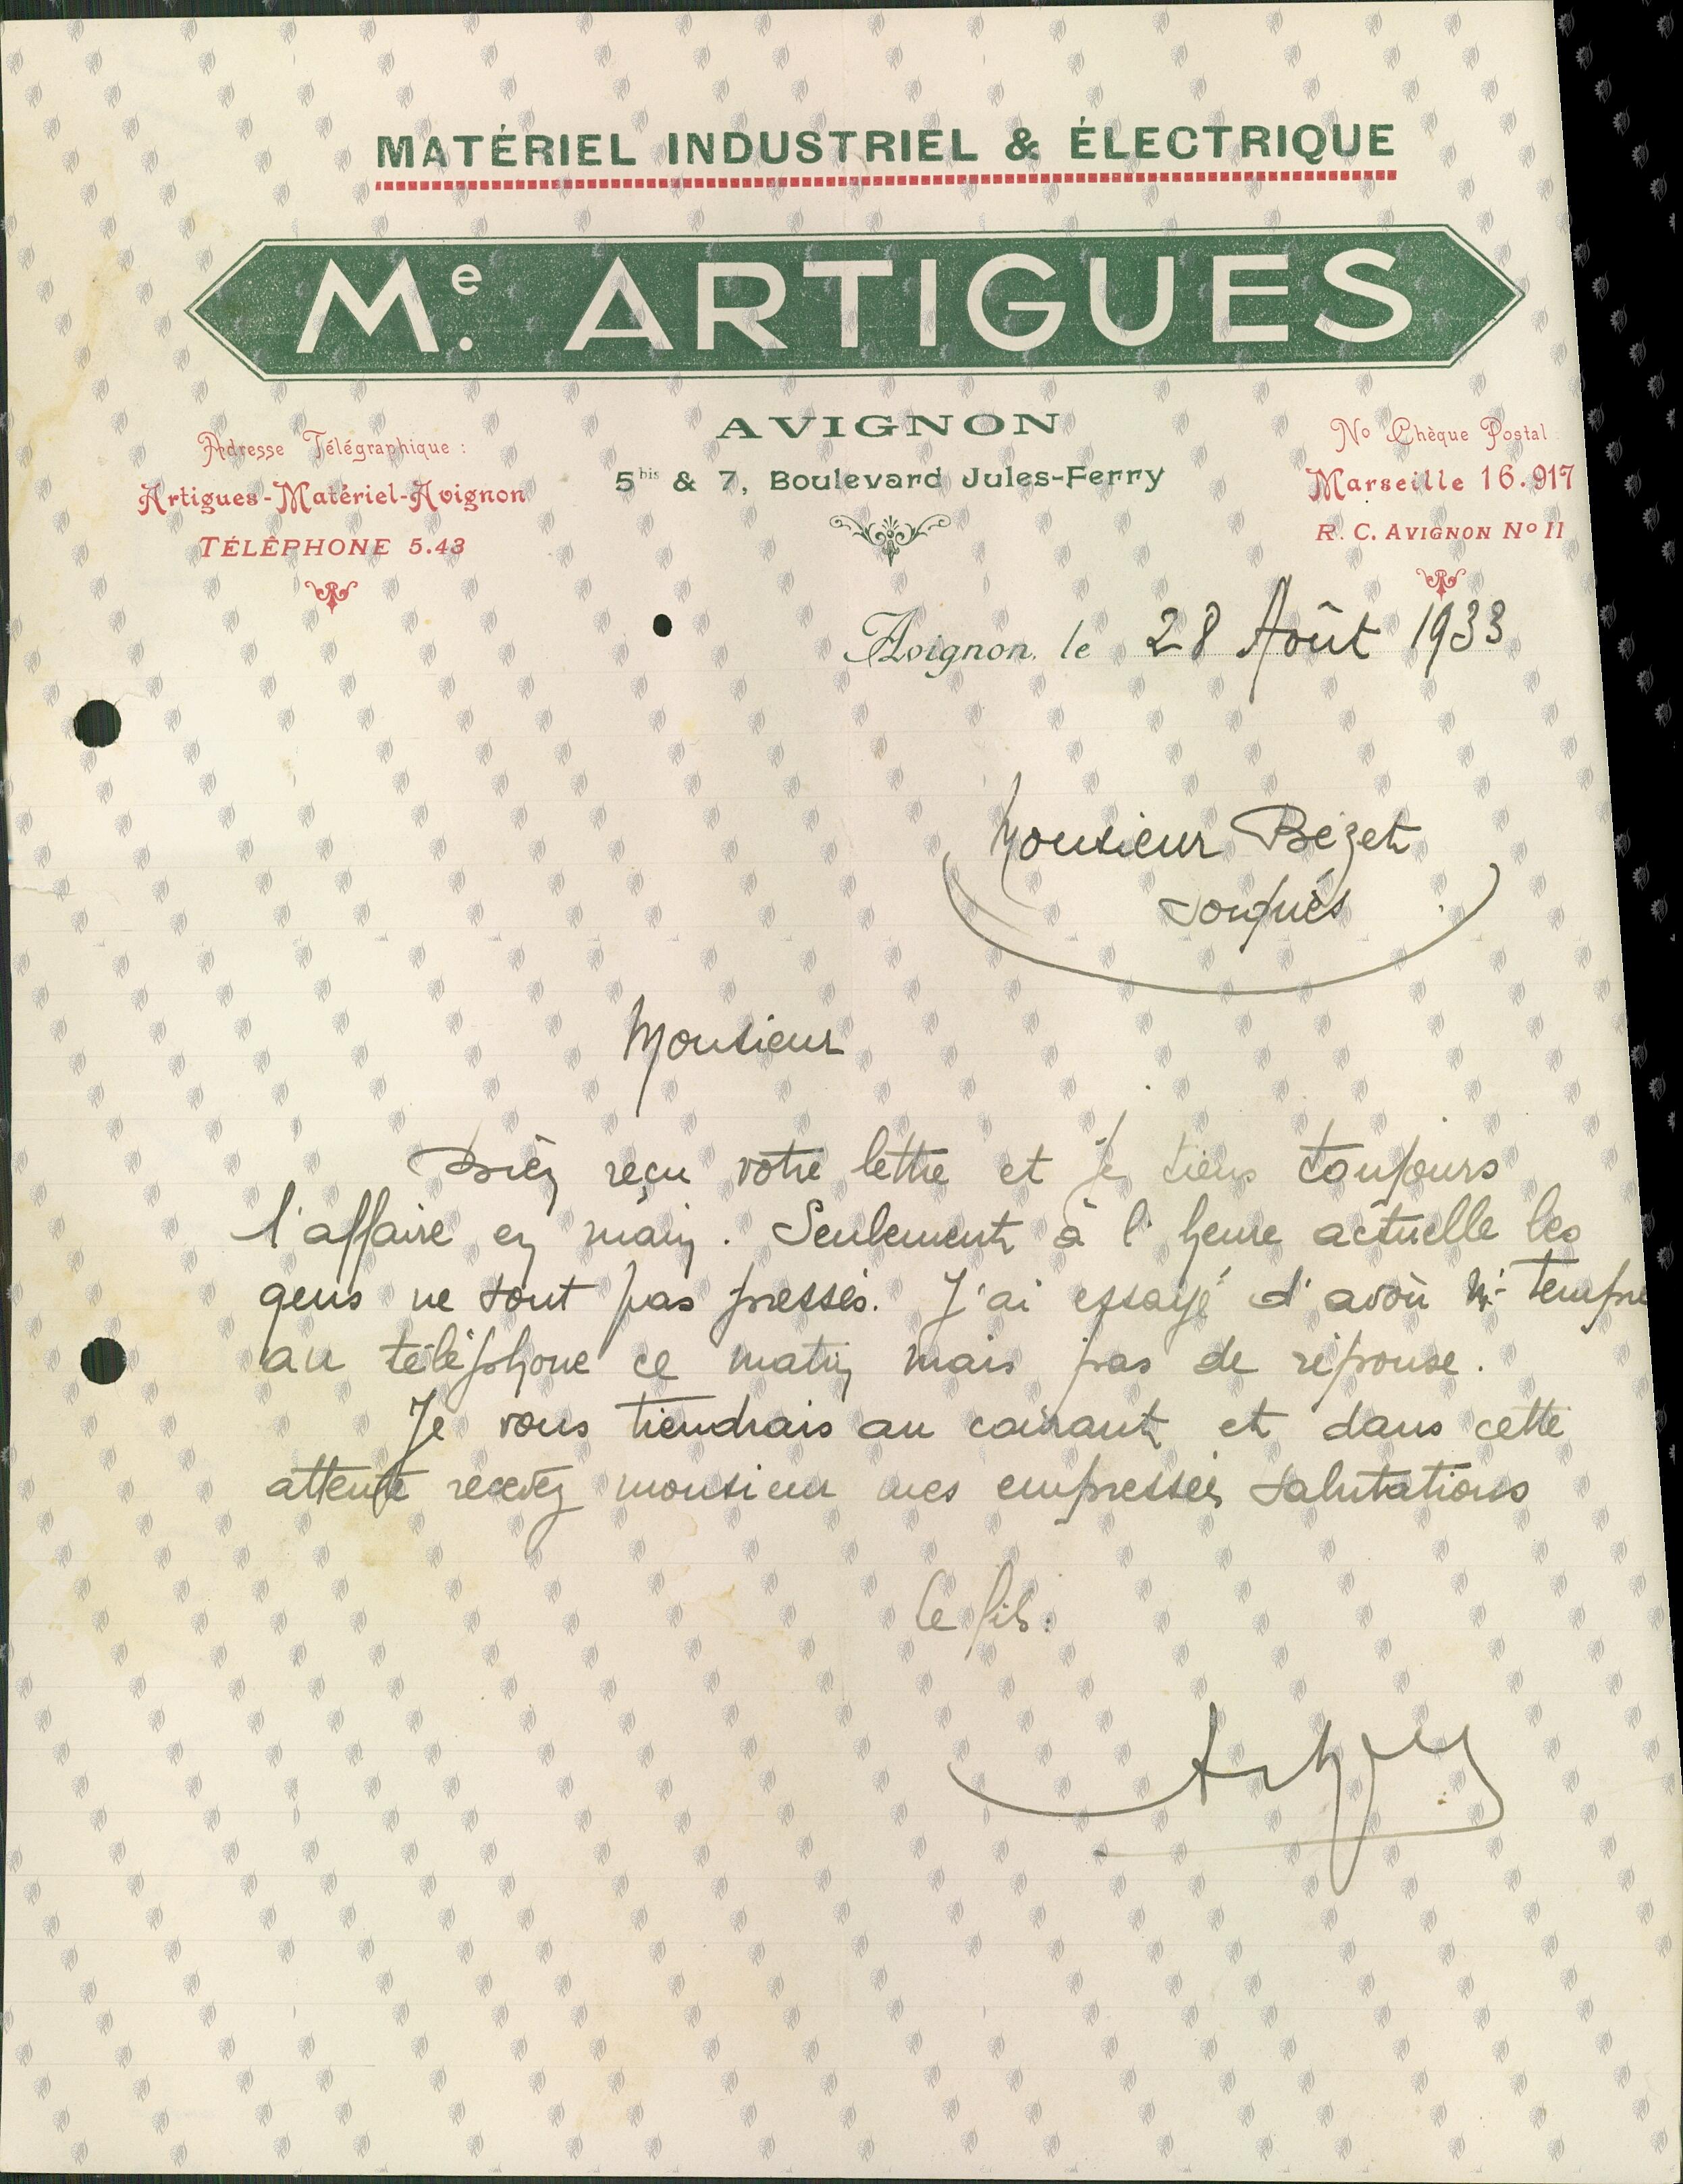 MATÉRIEL INDUSTRIEL & ÉLECTRIQUE
Me. ARTIGUES
AVIGNON
5bis & 7, Boulevard Jules-Ferry
Adresse Télégraphique :
Artigues-Matériel-Avignon
TÉLÉPHONE 5.43
No Chèque Postal
Marseille 16.917
R. C. AVIGNON No 11
Avignon, le 28 Août 1933
Monsieur Bézet
Sorgues
Monsieur
Bien reçu votre lettre et je tiens toujours
l'affaire en main. Seulement à l'heure actuelle les
gens ne sont pas pressés. J'ai essayé d'avoir Mr
au téléphone ce matin mais pas de réponse.
Je vous tiendrais au courant et dans cette
attente recevez monsieur mes empressées salutations
Le fils.
Artigues